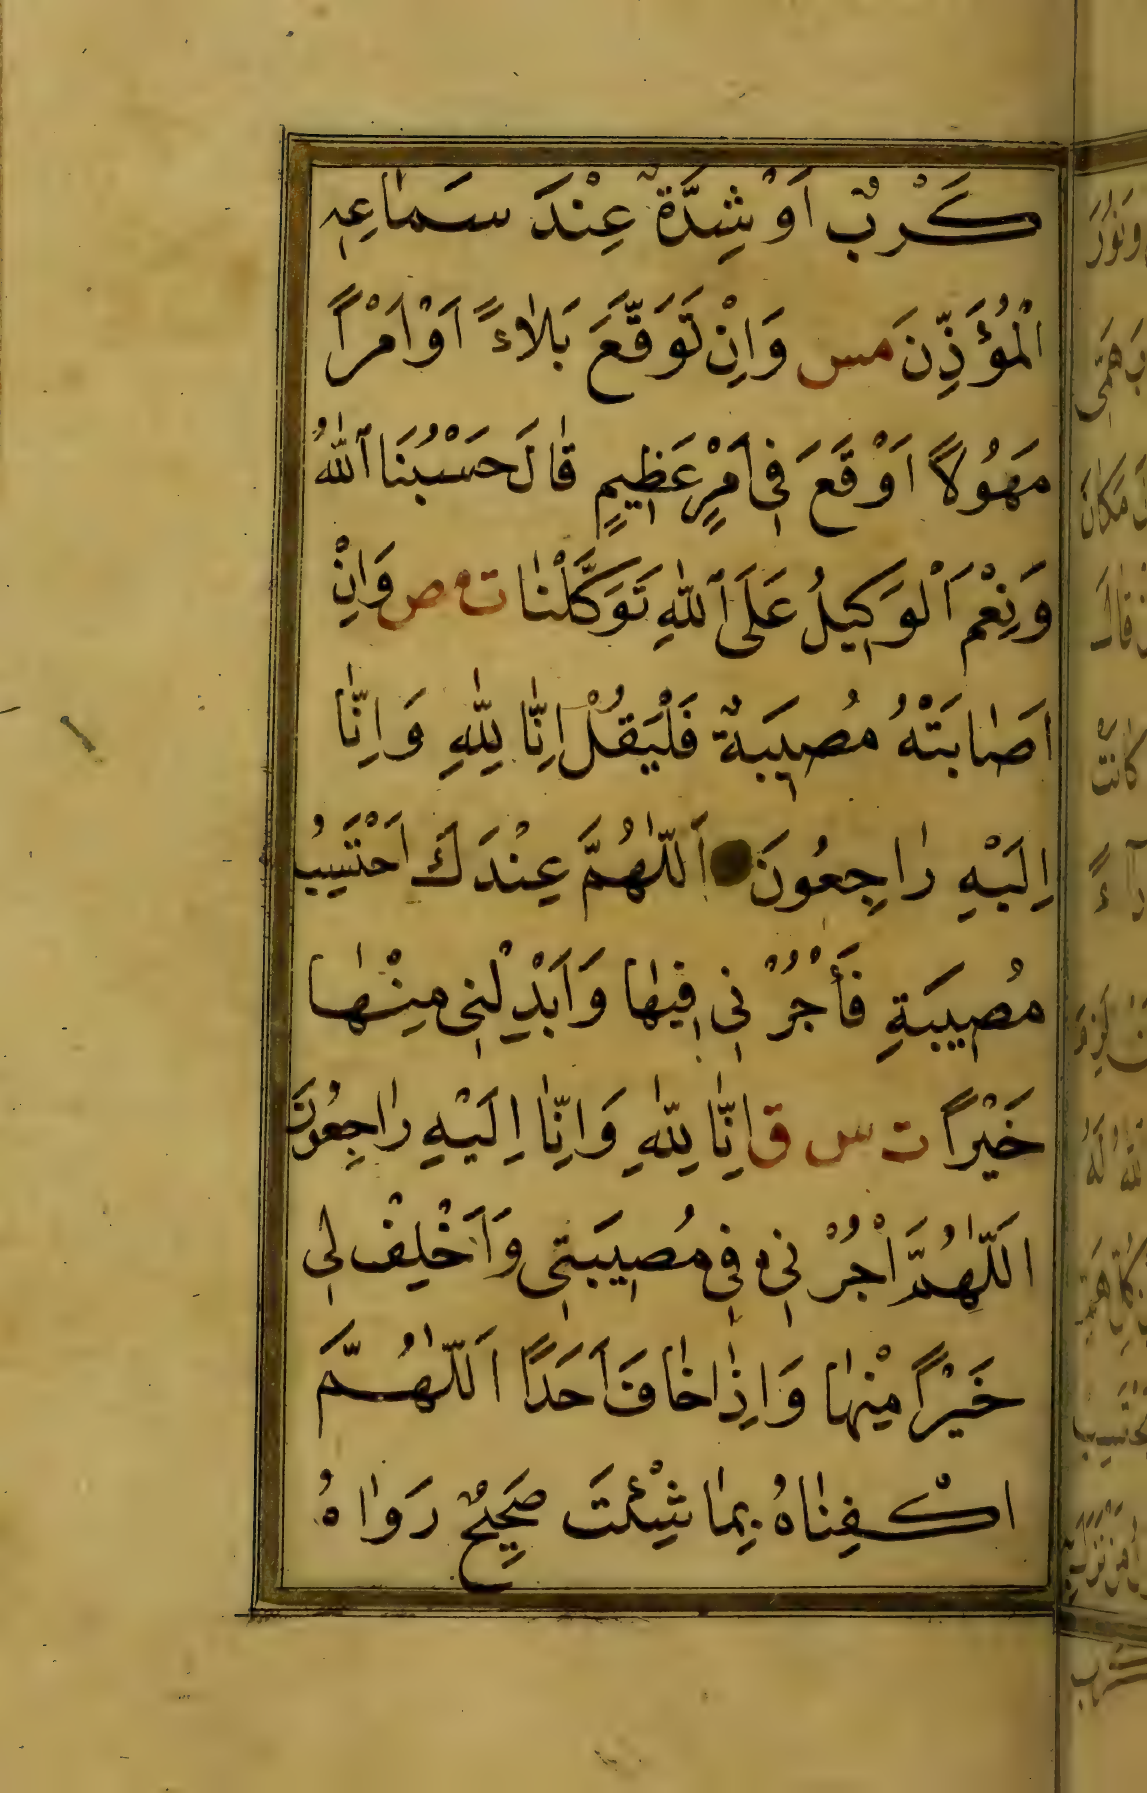 كَرْبٌ اَوْ شِدَّةٌ عِنْدَ سَمَاعِهِ
الْمُؤَذِّنَ مس وَاِنْ تَوَقَّعَ بَلَاءً اَوْ اَمْرًا
مَهُولًا اَوْ وَقَعَ فِى اَمْرٍ عَظِيمٍ قَالَ حَسْبُنَا اللّٰهُ
وَنِعْمَ الْوَكِيلُ عَلَى اللّٰهِ تَوَكَّلْنَا ت مص وَاِنْ
اَصَابَتْهُ مُصِيبَةٌ فَلْيَقُلْ اِنَّا لِلّٰهِ وَاِنَّا
اِلَيْهِ رَاجِعُونَ اَللّٰهُمَّ عِنْدَكَ اَحْتَسِبُ
مُصِيبَةِ فَأْجُرْنِى فِيهَا وَاَبْدِلْنِى مِنْهَا
خَيْرًا ت س ق اِنَّا لِلّٰهِ وَاِنَّا اِلَيْهِ رَاجِعُونَ
اللّٰهُمَّ اْجُرْنِى فِى مُصِيبَتِى وَاَخْلِفْ لِى
خَيْرًا مِنْهَا م وَاِذَا خَافَ اَحَدًا اَللّٰهُمَّ
اكْفِنَاهُ بِمَا شِئْتَ صَحِيحٌ رَوَاهُ